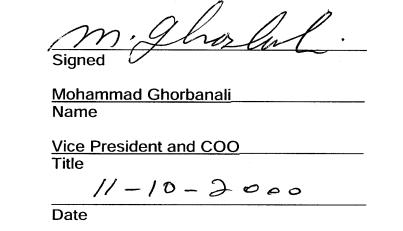 M. Ghorbanali
Signed
Mohammad Ghorbanali
Name
Vice President and COO
Title
11-10-2000
Date